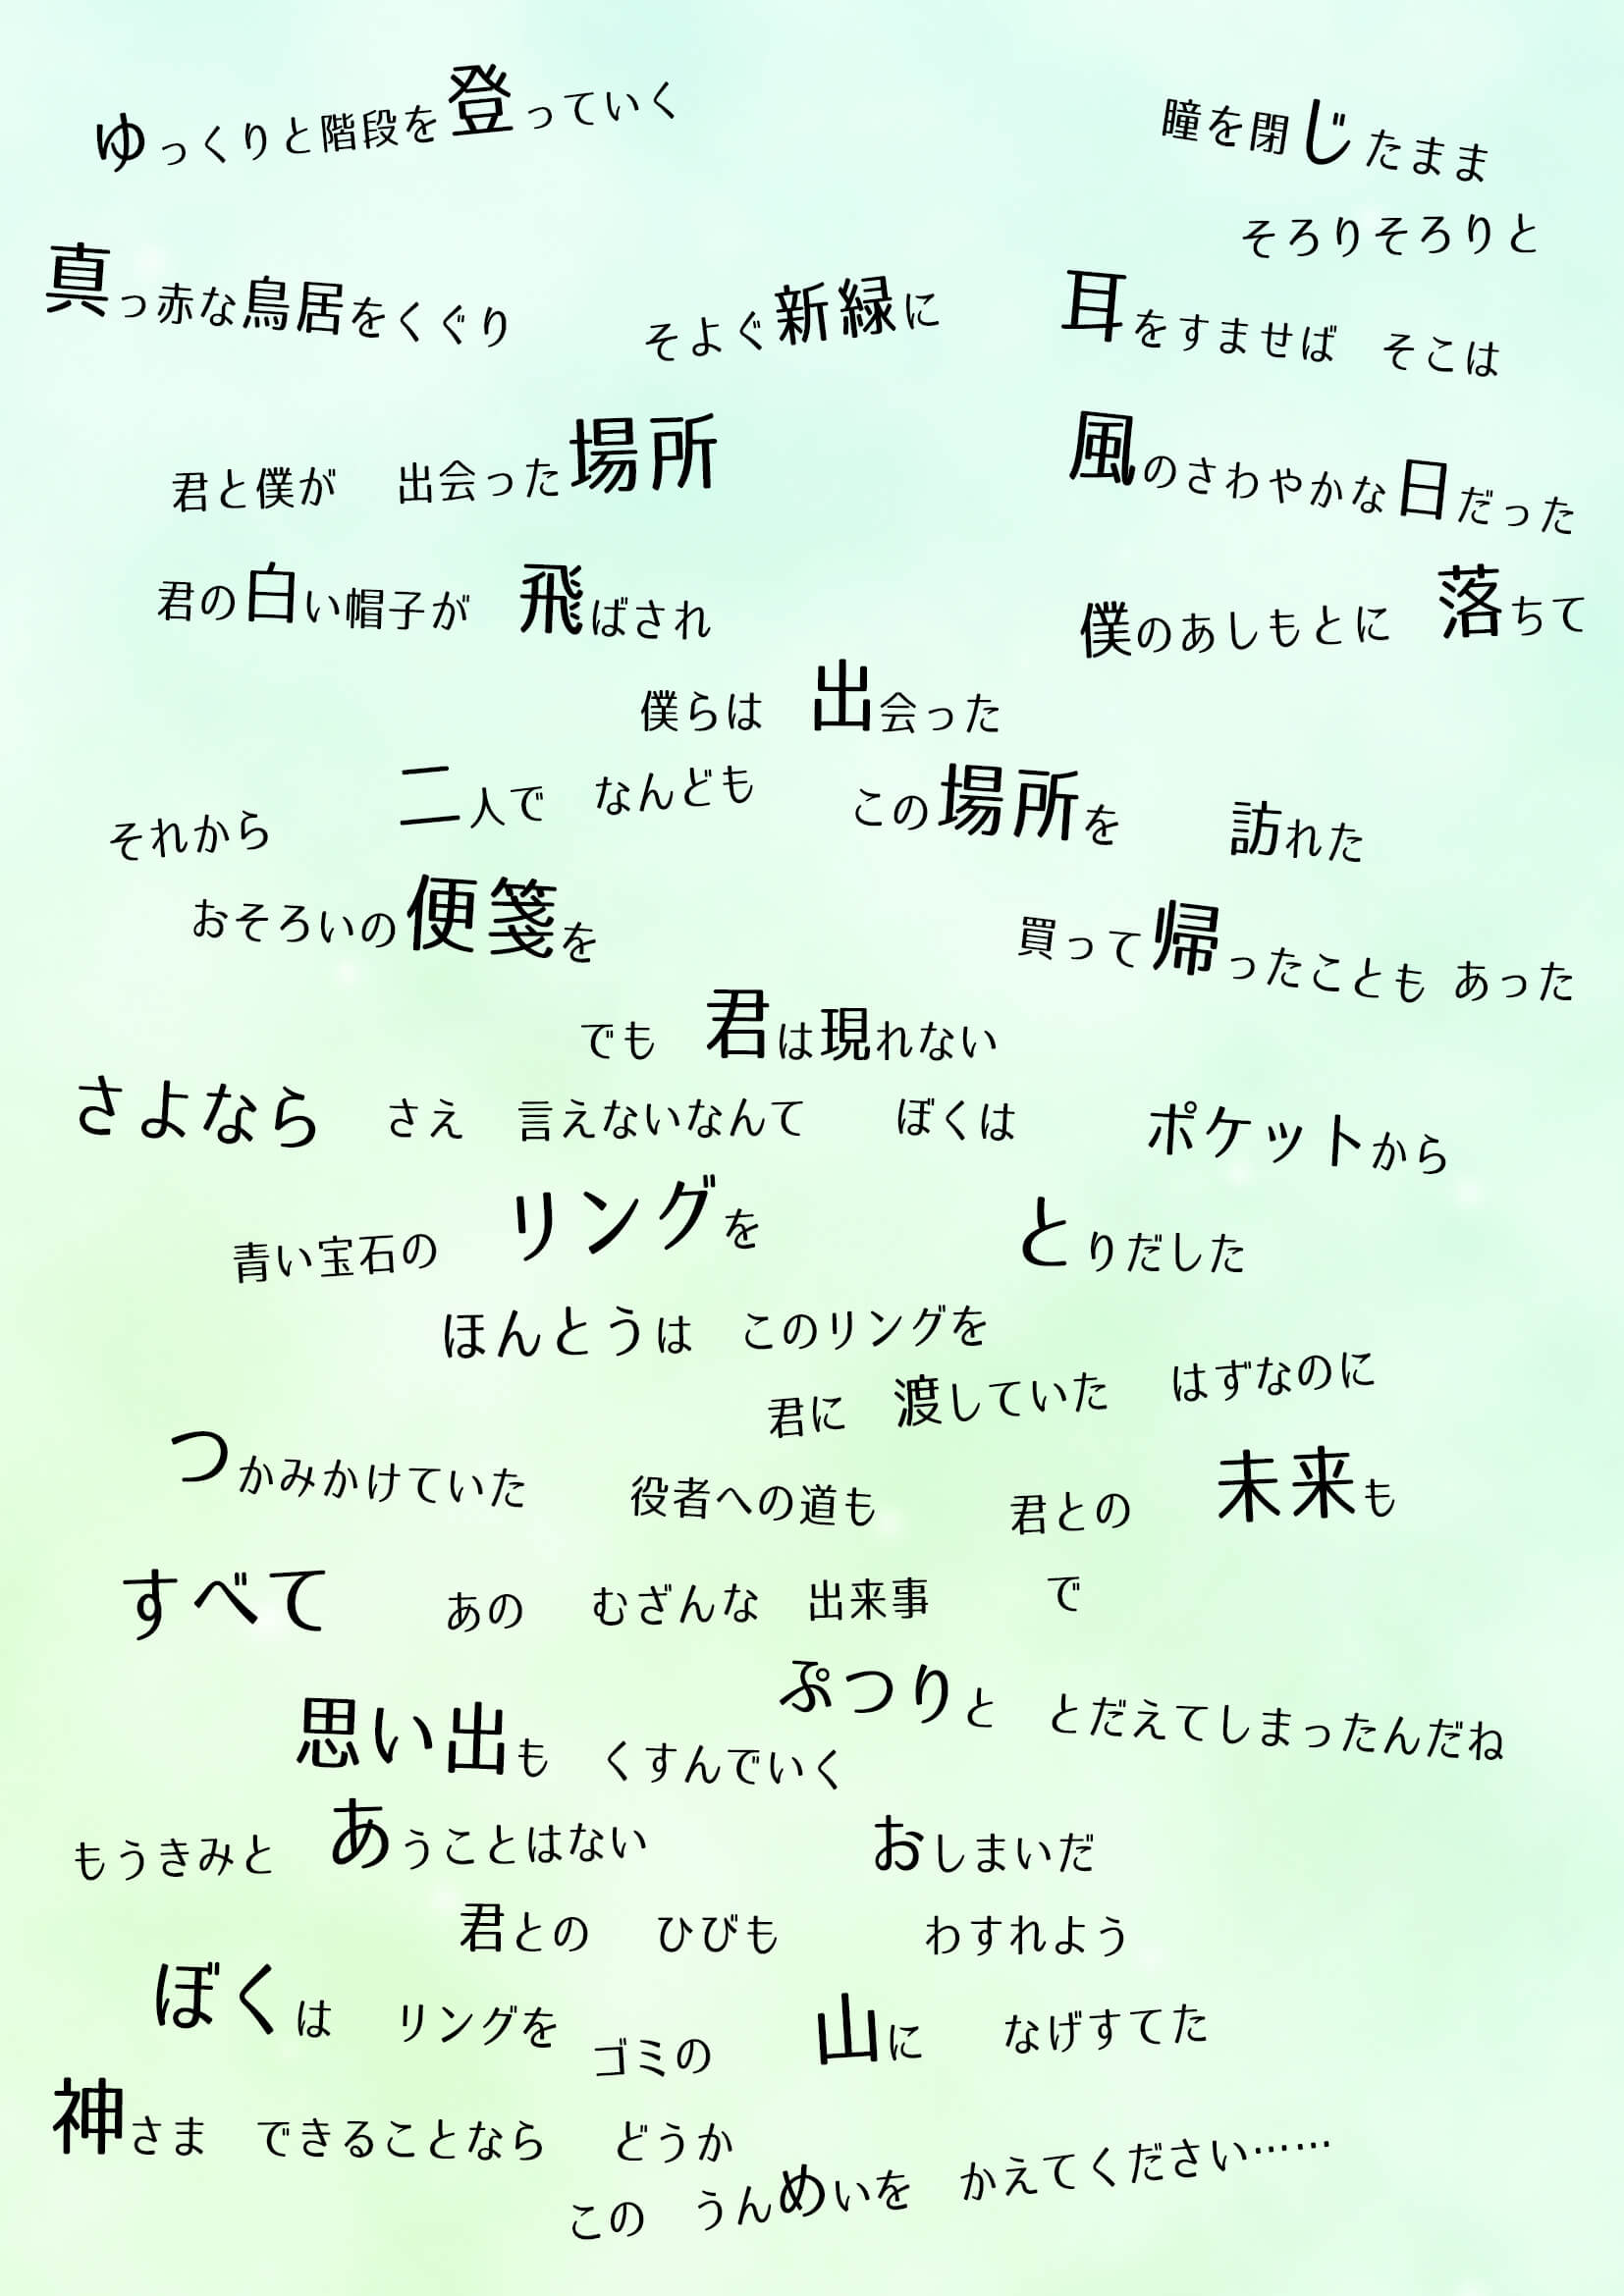 ゆっくりと階段を登っていく
瞳を閉じたまま
そろりそろりと
真っ赤な鳥居をくぐり
そよぐ新緑に
耳をすませば そこは
君と僕が 出会った場所
風のさわやかな日だった
君の白い帽子が 飛ばされ
僕のあしもとに 落ちて
僕らは 出会った
それから 二人で なんども この場所を 訪れた
おそろいの便箋を 買って帰ったことも あった
でも 君は現れない
さよなら さえ 言えないなんて ぼくは ポケットから
青い宝石の リングを とりだした
ほんとうは このリングを
君に 渡していた はずなのに
つかみかけていた 役者への道も 君との 未来も
すべて あの むざんな 出来事 で
ぷつりと とだえてしまったんだね
思い出も くすんでいく
もうきみと あうことはない おしまいだ
君との ひびも わすれよう
ぼくは リングを ゴミの 山に なげすてた
神さま できることなら どうか
この うんめいを かえてください……